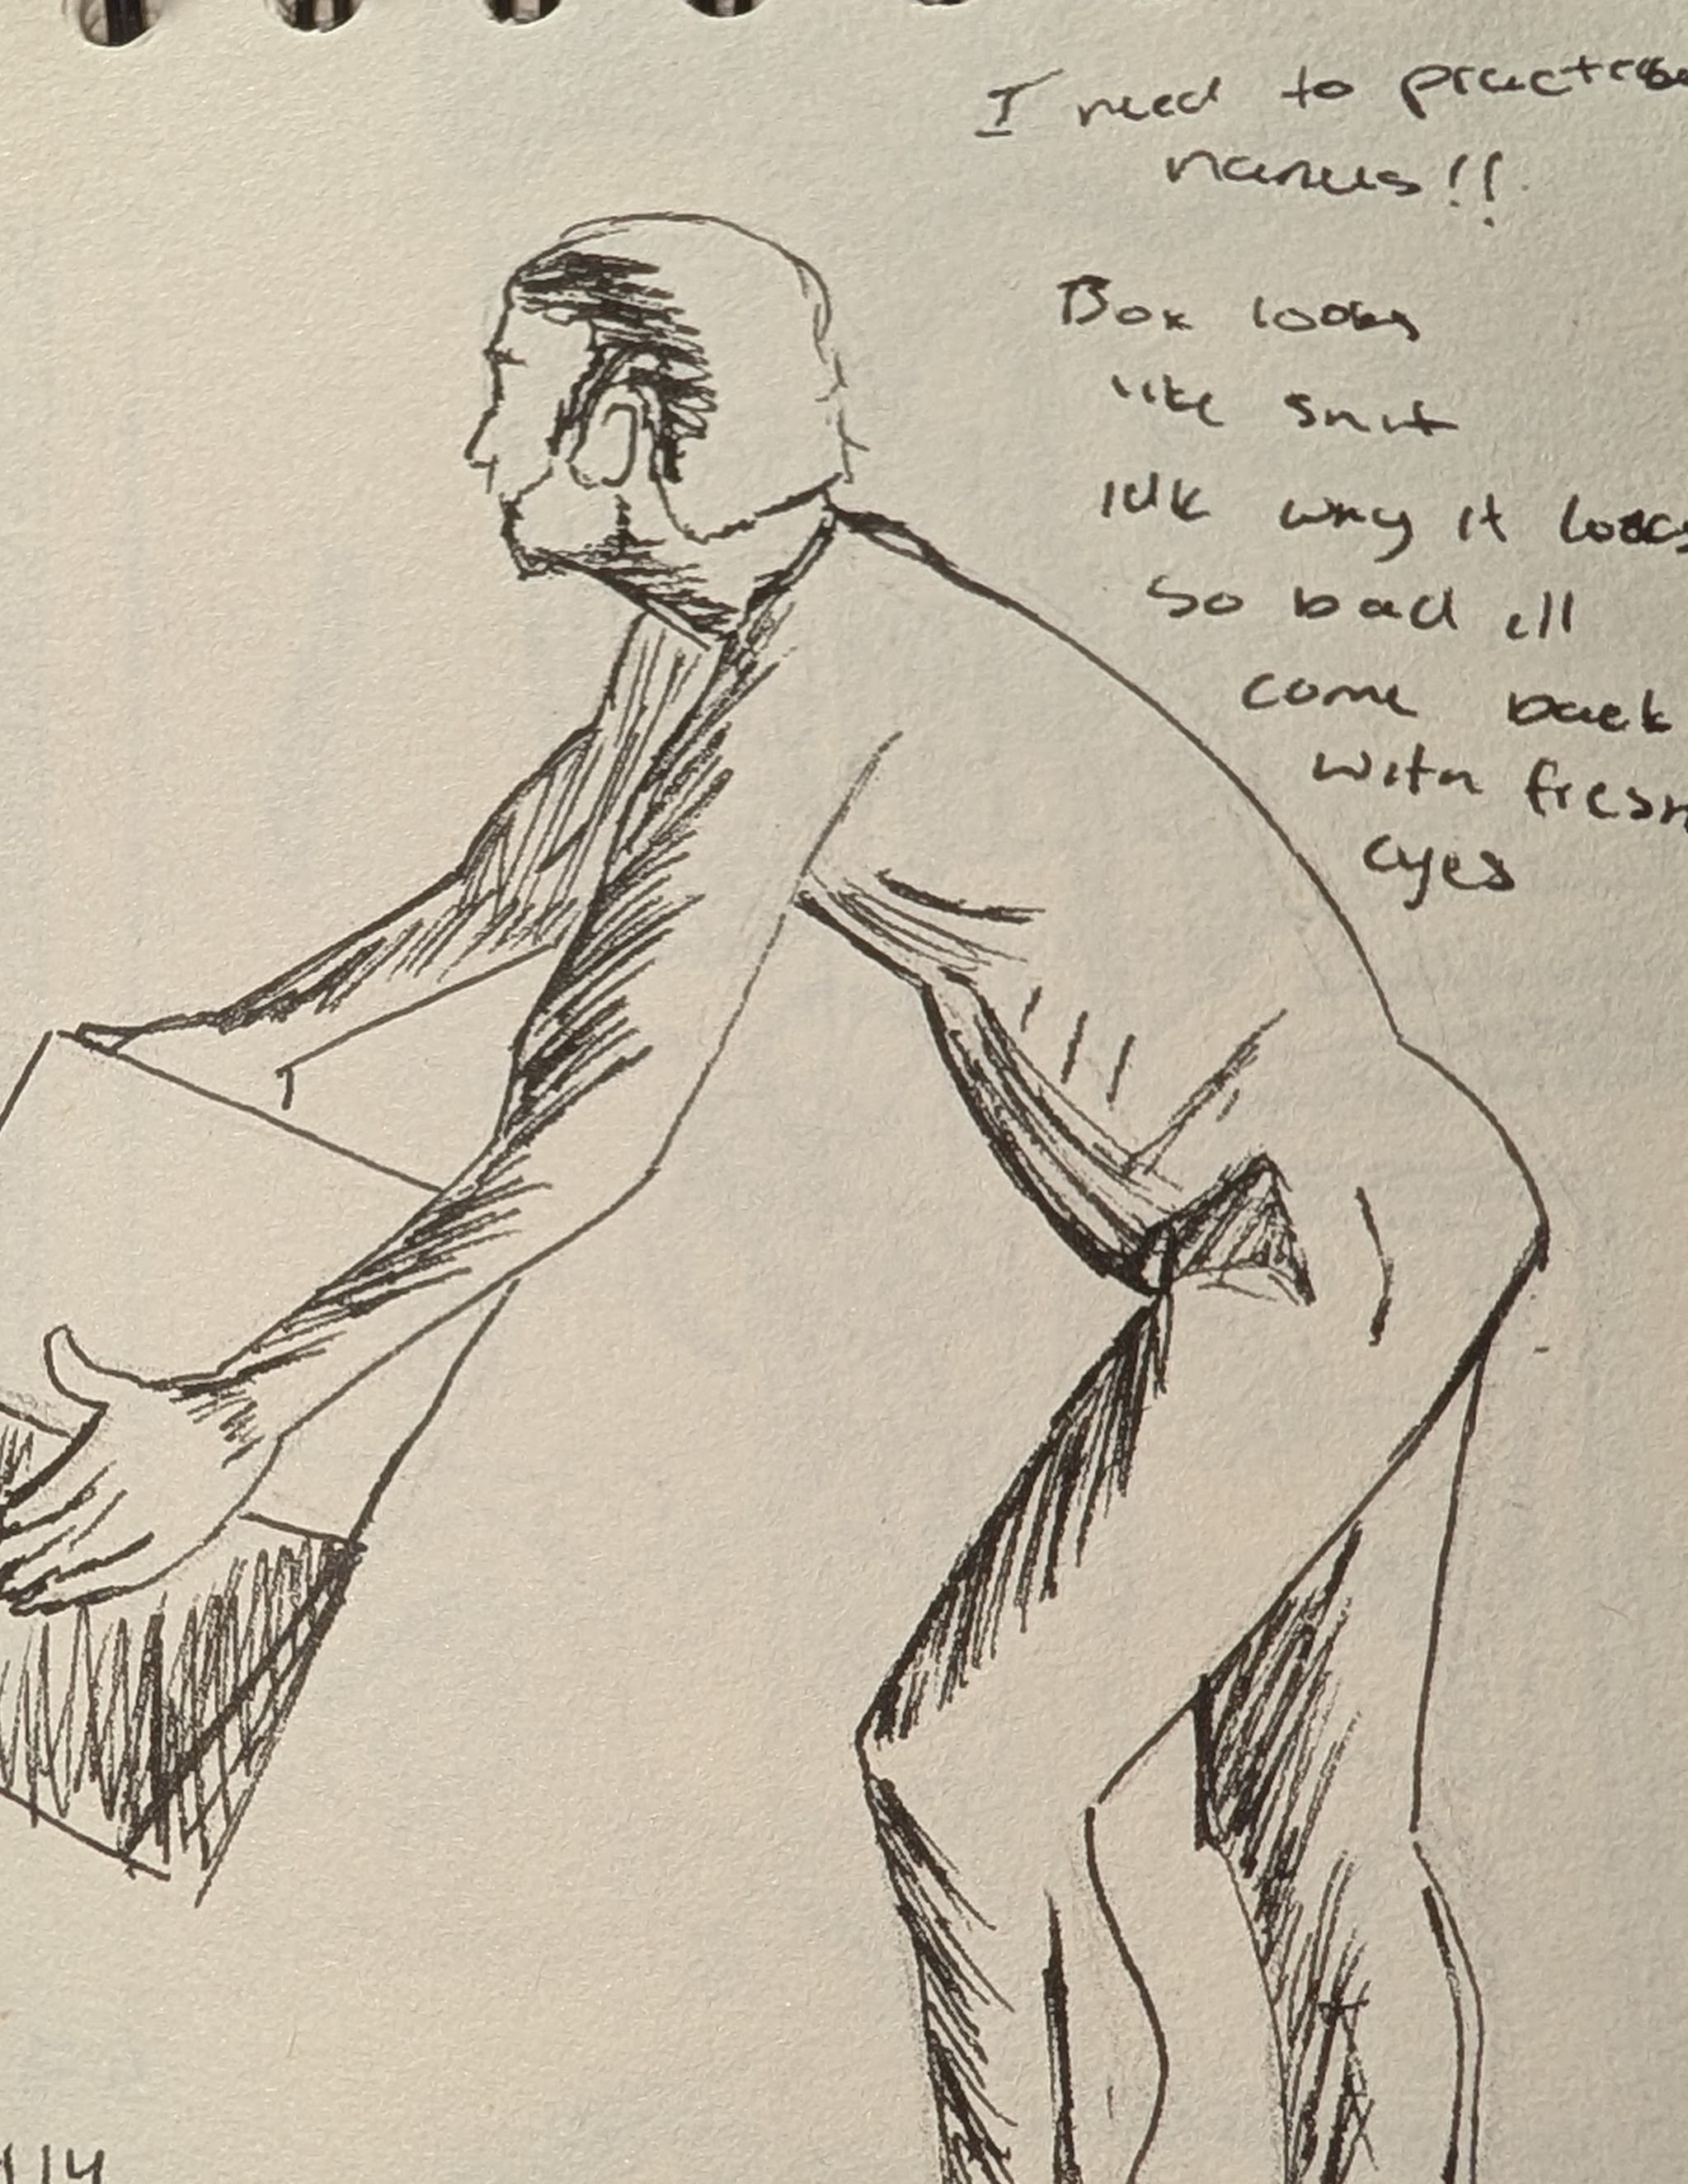 I need to practice
hands!!
Box looks
like shit
idk why it looks
so bad ill
come back
with fresh
eyes
1/14